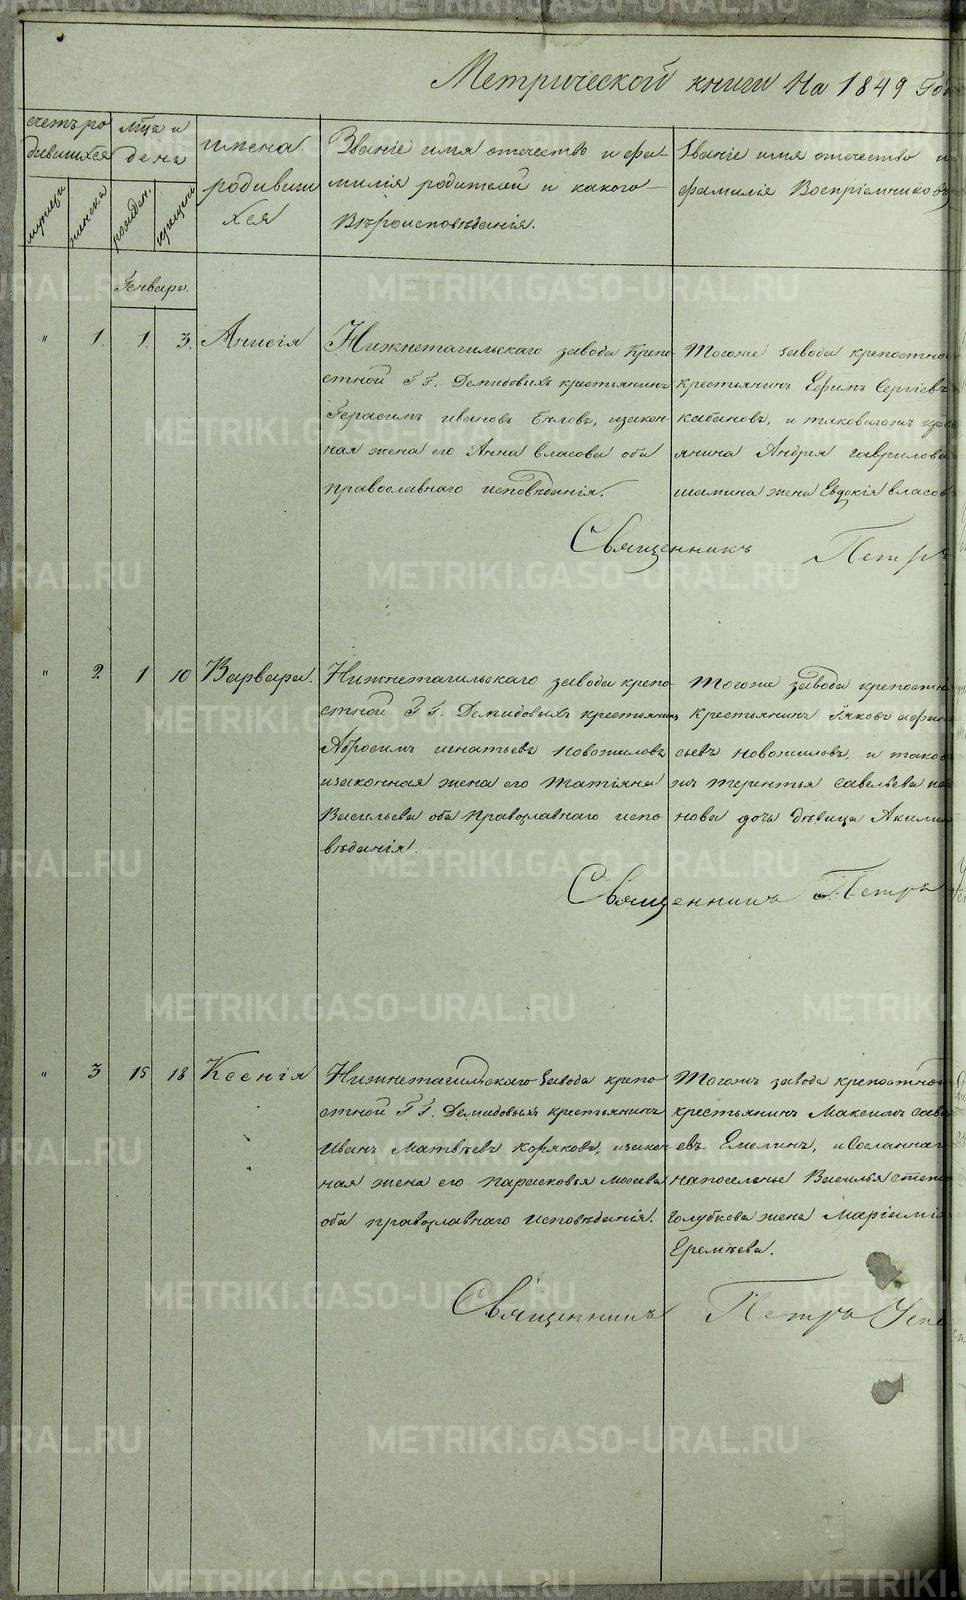 Метрической книги на 1849 Год
счетъ ро
дившихся
мцъ и
день
имена
родивши
хся
Званіе имя отечество и фа
милія родителей и какого
Вѣроисповѣданія.
Званіе имя отечество и
фамилія Воспріемниковъ
мужеска
женска
рожден.
крещенія
Генварь.
" 1. 1. 3. Анисія
Нижнетагильскаго завода Крепо
стной Г Г. Демидовыхъ крестьянинъ
Герасимъ ивановъ Бѣловъ, изакон
ная жена его Анна власова оба
православнаго исповѣданія.
Тогоже завода крепостно
крестьянинъ Ефимъ Сергіевъ
кабановъ, и таковагожъ кре
янина Андрея гаврилова
шамина жена Евдокія власов
Священникъ Петръ
" 2. 1 10 Варвара.
Нижнетагильскаго завода крепо
стной Г Г. Демидовыхъ крестьянинъ
Абросимъ игнатьевъ новожиловъ
изаконная жена его Татіяна
Васильева оба Православнаго испо
вѣданія.
Тогоже завода крепостн
Крестьянинъ Іяковъ афан
сьевъ новожиловъ, и таков
жъ терентья савельева
нова дочь дѣвица Акили
Священникъ Петръ
" 3 15 18 Ксенія
Нижнетагильскаго Завода крепо
стной Г Г. Демидовыхъ крестьянинъ
Иванъ Матвѣевъ Коряковъ, изакон
ная жена его парасковья Мосеева
оба православнаго исповѣданія.
Тогожъ завода крепостной
крестьянинъ Максимъ савв
евъ Емелинъ, и Сосланнаг
напоселенье Василья степ
Голубкова жена Маріамія
Еремѣева.
Священникъ Петръ
METRIKI.GASO-URAL.RU